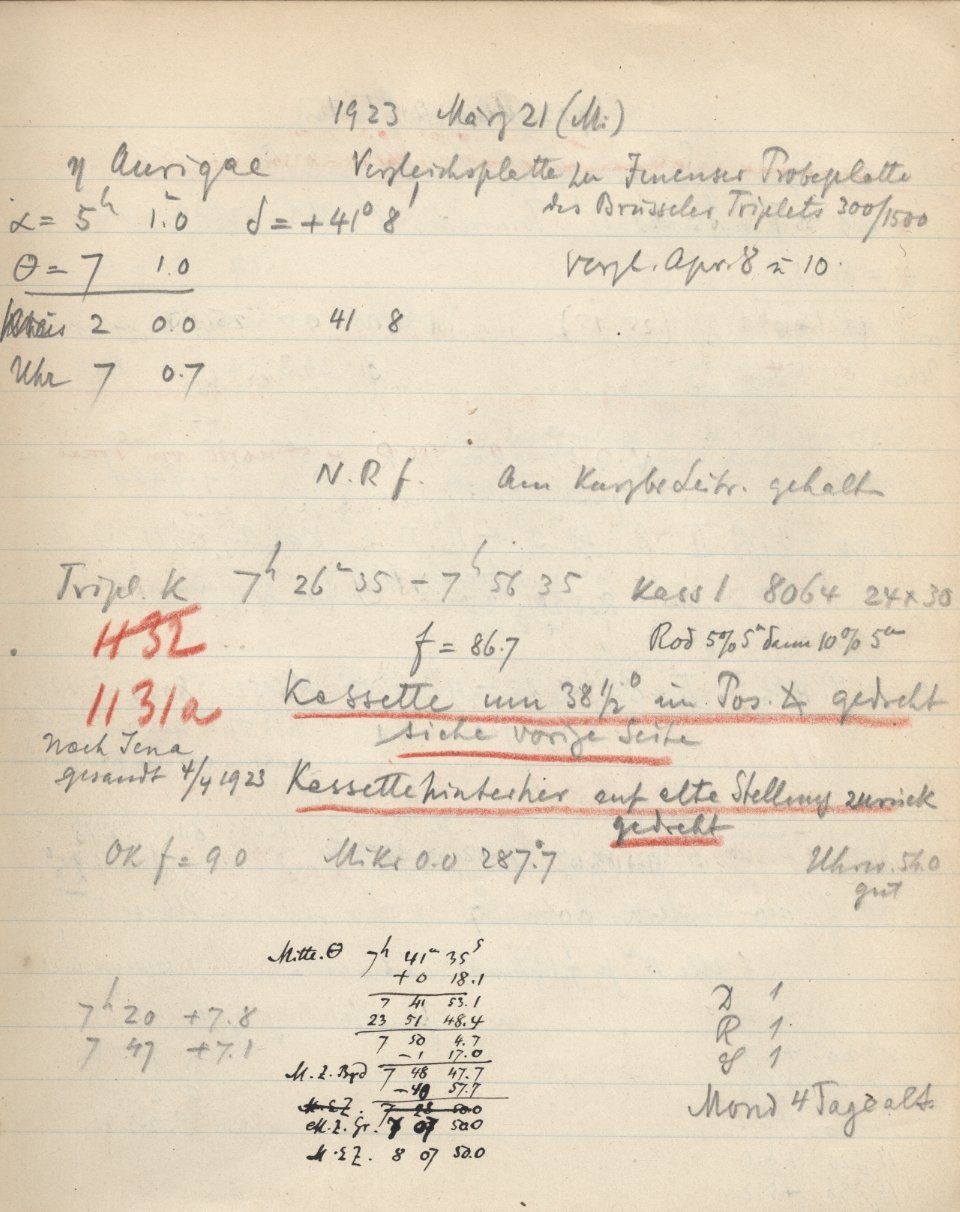 1923 März 21 (Mi)
η Aurigae Vergleichsplatte zu Jenenser Probeplatte
des Brüsseler Triplets 300/1500
α = 5h 1.m0 δ = +41° 8'
θ = 7 1.0 Vergl. Apr. 8 u 10.
Kreis 2 0.0 41 8
Uhr 7 0.7
N.R f. Am gehalt
Tripl. K 7h 26m 35 – 7h 56 35 Kass 1 8064 24×30
1131a
f = 86.7 Rod 5% 5m dann 10% 5m
Kassette um 38 1/2° im Pos. ∡ gedreht
siehe vorige Seite
nach Jena
gesandt 4/4 1923
Kassette hinterher auf alte Stellung zurück
gedreht
OK f = 9.0 Mikr 0.0 287.°7 Uhrw. 54.0
gut
Mitte θ 7h 41m 35s
+0 18.1
7 41 53.1
23 51 48.4
7 50 4.7
–1 17.0
M.Z. Bgd 7 48 47.7
–40 57.7
M.Z. Gr. 7 07 50.0
M.E.Z. 8 07 50.0
7h 20 +7.8
7 47 +7.1
D 1
R 1
1
Mond 4 Tage alt.